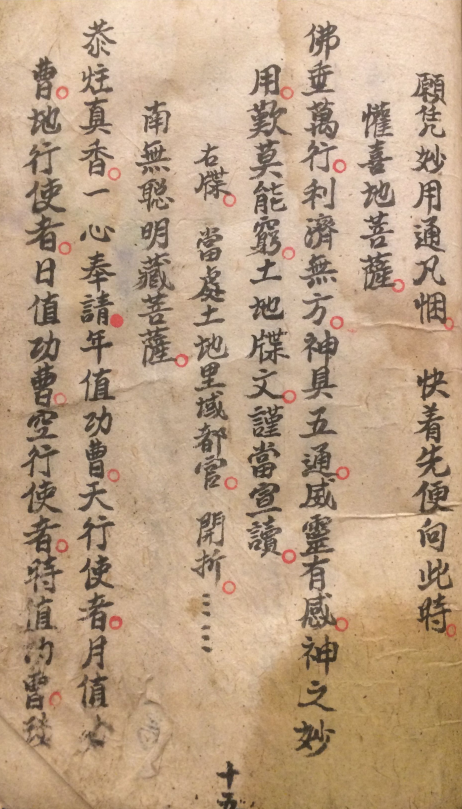 願凭妙用通凡悃。 快着先便向此時。
懽喜地菩薩。
佛垂萬行。利濟無方。神具五通。威靈有感。神之妙
用。歎莫能窮。土地牒文。謹當宣讀。
右牒。 當處土地里域都官。 開折。
南無聰明藏菩薩。
恭炷真香。一心奉請。年值功曹。天行使者。月值
曹。地行使者。日值功曹。空行使者。時值功曹。
十五